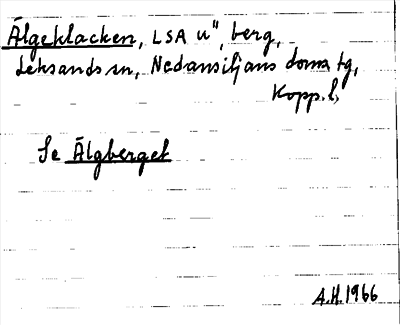 Älgeklacken, LSA u", berg,
Leksands sn, Nedansiljans doms tg,
Kopp. l,
Se Älgberget
A.H. 1966